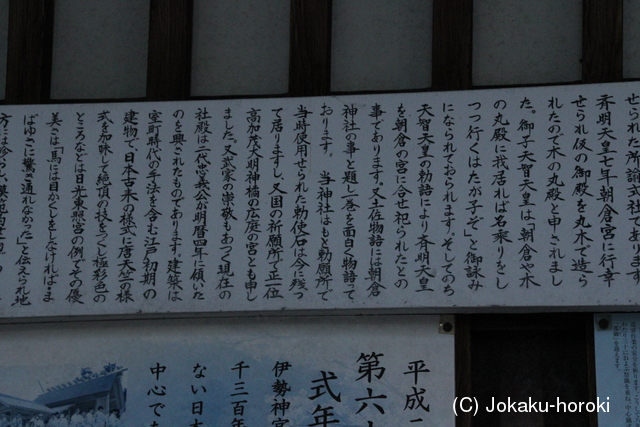 せられた
斉明天皇七年朝倉宮に行幸
せられ仮の御殿を丸木で造ら
れたので木の丸殿と申されまし
た。御子天智天皇は「朝倉や木
の丸殿に我居れば名乗りをし
つつ行くはたが子ぞ」と御詠み
になられておられます。そしてのち
天智天皇の勅語により斉明天皇
を朝倉の宮に合せ祀られたとの
事であります。又土佐物語には朝倉
神社の事と題し一巻を面白く物語って
おります。 当神社はもと勅願所で
当時使用せられた勅使石は今に残っ
て居りますし、又国の祈願所、正一位
高加茂大明神橋の広庭の宮とも申し
ました。又武家の崇敬もあつく現在の
社殿は二代忠義公が明暦四年に傾いた
のを興されたものであります。建築は
室町時代の手法を含む江戸初期の
建物で、日本古来の様式に唐天竺の様
式を加味して絶頂の技をつくし極彩色の
ところなどは日光東照宮の例でその優
美さは「馬には目かくしをしなければ・ま
ばゆさに驚き通れなかった」と伝えられ地
平成二
第六
式年
伊勢神宮
千三百年
ない日本
中心で
(C) Jokaku-horoki